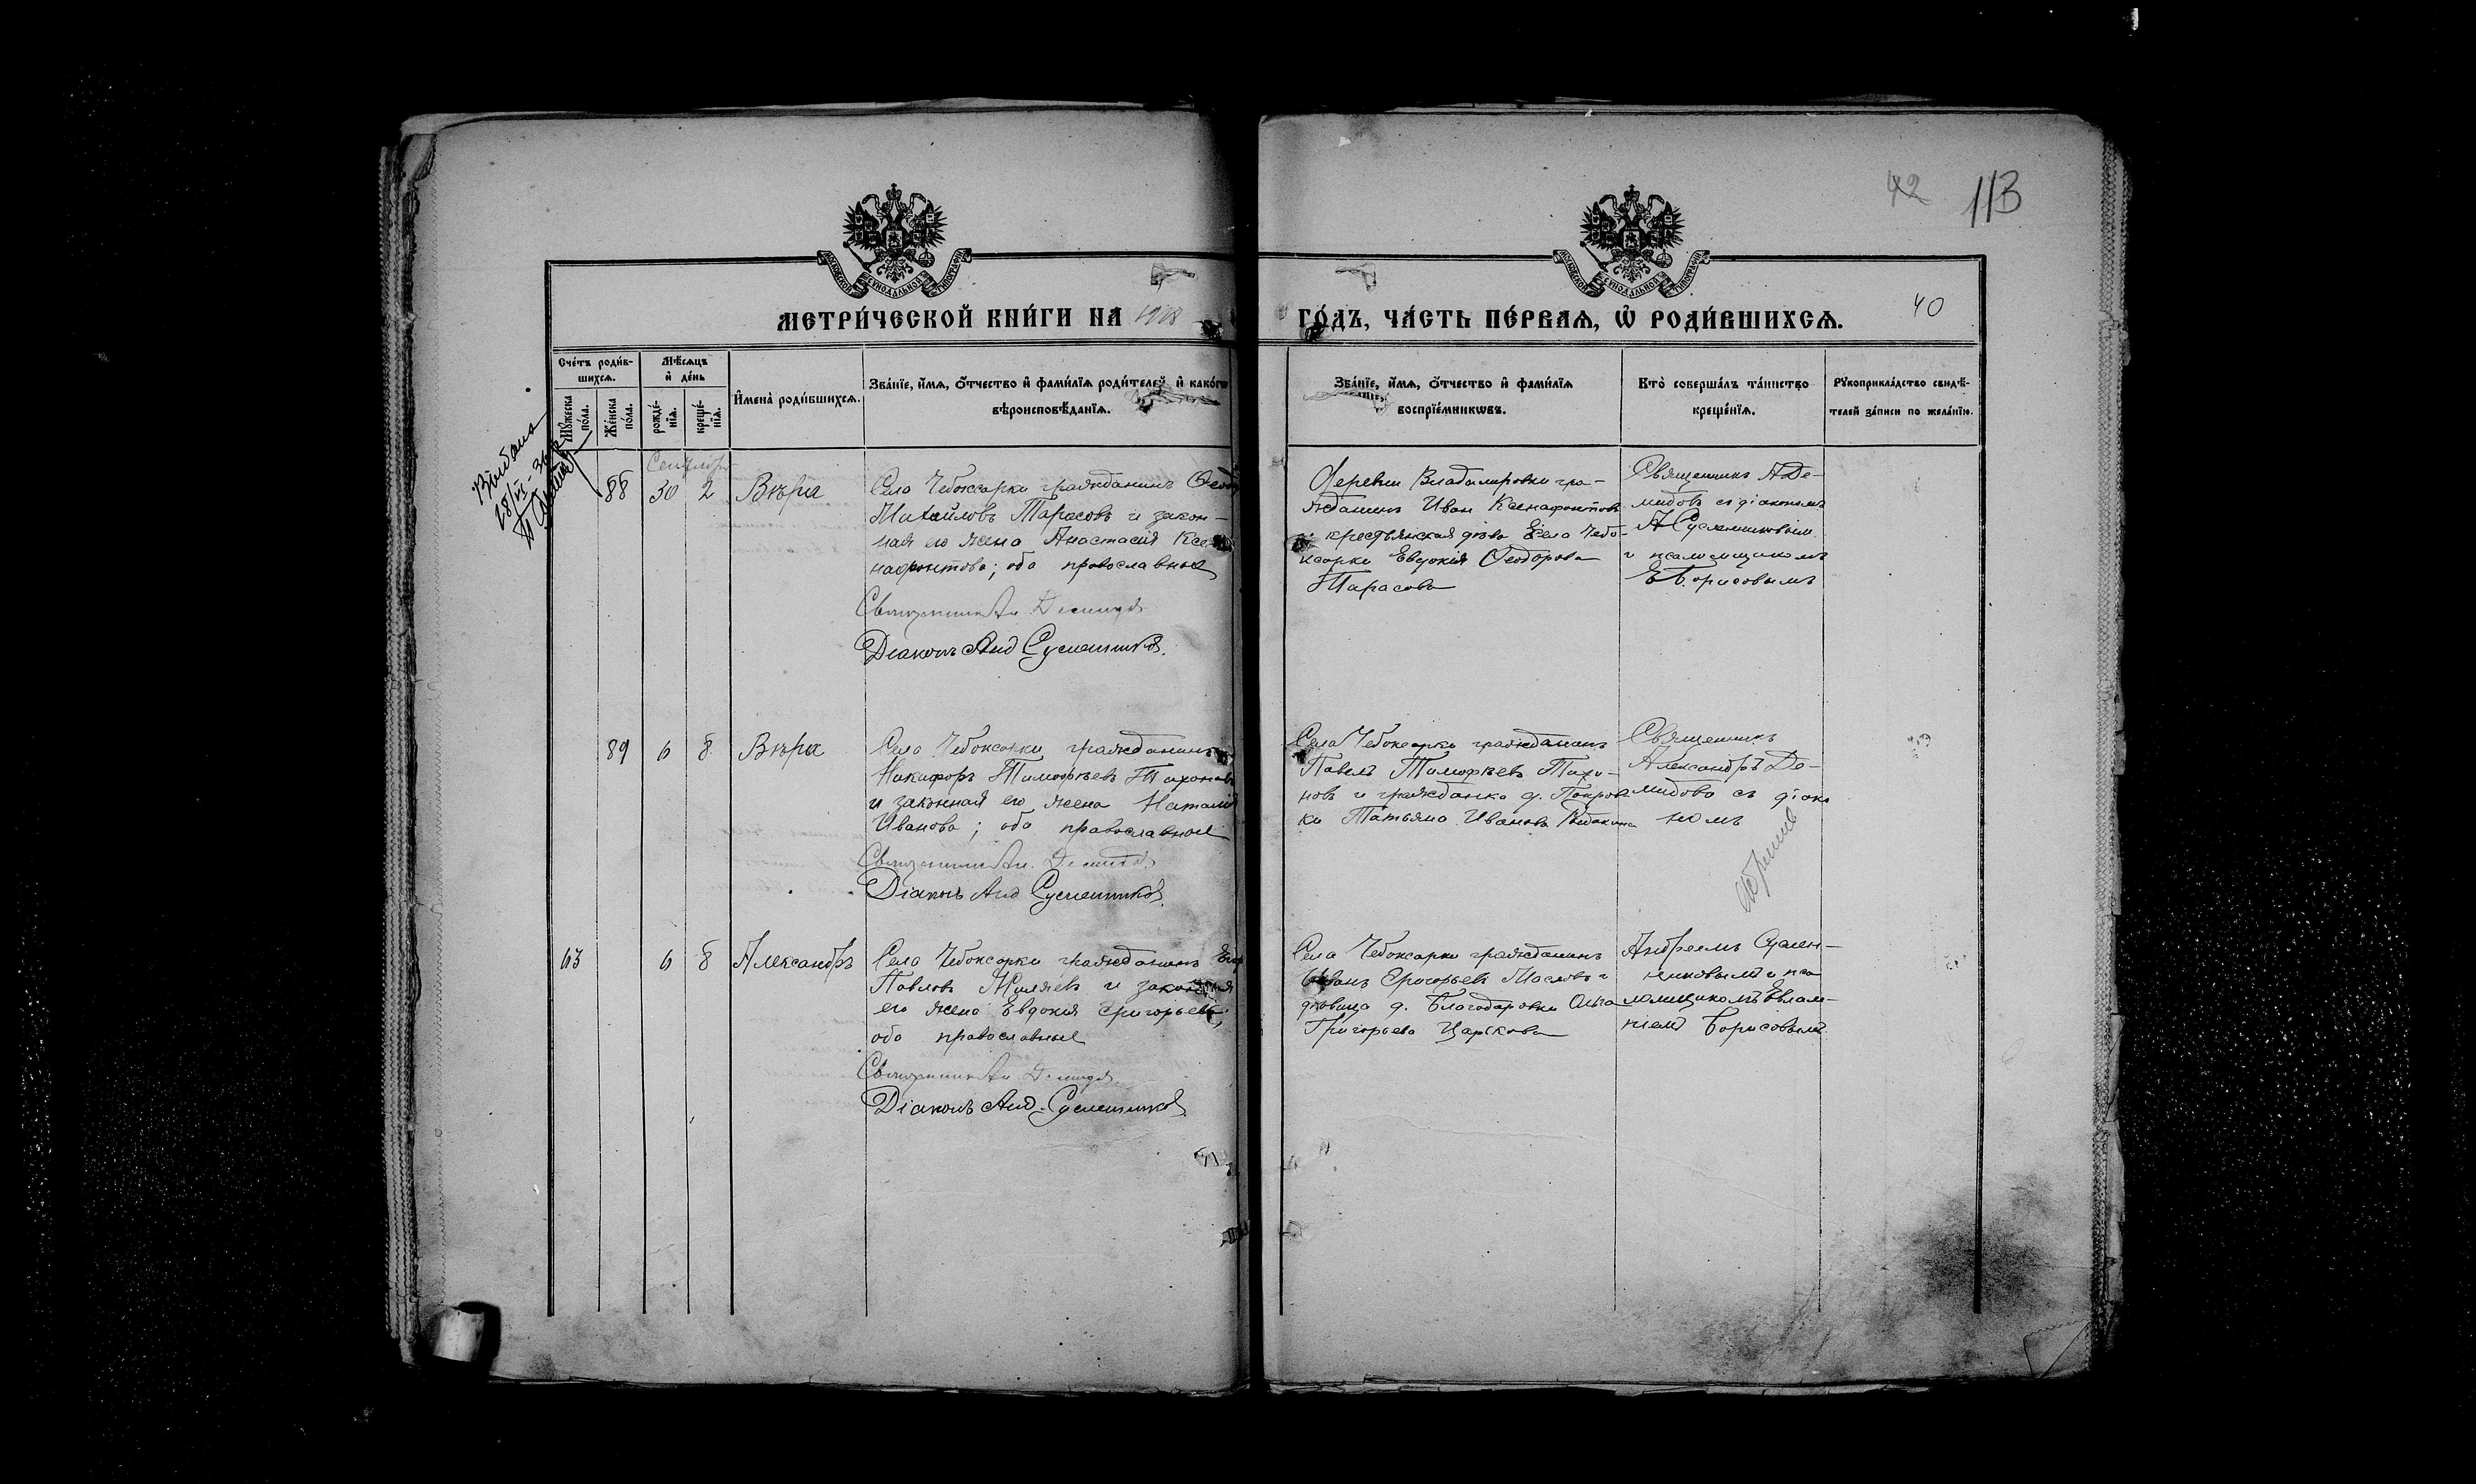 42 113
МОСКОВСКОЙ СѴНОДАЛЬНОЙ ТИПОГРАФІИ
МОСКОВСКОЙ СѴНОДАЛЬНОЙ ТИПОГРАФІИ
МЕТРИ́ЧЕСКОЙ КНИ́ГИ НА 1918
ГО́ДЪ, ЧА́СТЬ ПЕ́РВАѦ, Ѽ РОДИ́ВШИХСѦ.
40
Сче́тъ роди́в-
шихсѧ.
Мꙋ́жеска
по́ла.
Же́нска
по́ла.
Мѣ́сѧцъ
и҆ де́нь
рожде́-
нїѧ.
креще́-
нїѧ.
И҆мена̀ роди́вшихсѧ.
Зва́нїе, и҆́мѧ, ѻ҆́тчество и҆ фами́лїѧ роди́телей, и҆ како́гѡ
вѣроисповѣ́данїѧ.
Зва́нїе, и҆́мѧ, ѻ҆́тчество и҆ фами́лїѧ
воспрїе́мникѡвъ.
Кто̀ соверша́лъ та́инство
креще́нїѧ.
Рꙋкоприкла́дство свидѣ́-
телей за́писи по жела́нїю.
Сентябрь
88 30 2 Вѣра
Села Чебоксарки гражданинъ Ѳеод
Михайловъ Тарасовъ и закон-
ная его жена Анастасія Ксе-
нафонтова; оба православные
Священникъ Ал. Демидов
Діаконъ Анд Сусленников.
Деревни Владимировки гра-
жданинъ Иван Ксенафонтовъ
и крестьянская дѣва села Чебо-
ксарки Евдокія Ѳеодорова
Тарасова
Священникъ А Де-
мидовъ съ діакономъ
А Сусленниковымъ
и псаломщикомъ
Е Борисовымъ
89 6 8 Вѣра
Села Чебоксарки гражданинъ
Никифоръ Тимоѳѣевъ Тихоновъ
и законная его жена Наталія
Иванова; оба православные
Священникъ Ал. Демидов
Діаконъ Анд Сусленников.
Села Чебоксарки гражданинъ
Павелъ Тимоѳѣевъ Тихо-
новъ и гражданка д. Покров-
ки Татьяна Иванова
Священникъ
Александръ Де-
мидовъ съ діако
номъ
63 6 8 Александръ
Села Чебоксарки гражданинъ Егор
Павловъ Жиляевъ и законная
его жена Евдокія Григорьева;
оба православные
Священникъ Ал. Демидов
Діаконъ Анд. Сусленников
Села Чебоксарки гражданинъ
Иванъ Григорьевъ Масловъ и
дѣвица д. Благодаровки Ольга
Григорьева Царькова
Андреемъ Суслен-
никовымъ и пса
ломщикомъ Евлам-
піемъ Борисовымъ.